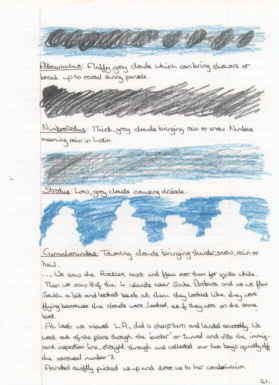 Altocumulus: Fluffy, grey clouds which can bring showers or
break up to reveal sunny periods.
Nimbostratus: Thick, grey clouds bringing rain or snow. Nimbus
meaning rain in Latin.
Stratus: Low, grey clouds causing drizzle.
Cumulonimbus: Towering clouds bringing thunder, snow, rain or
hail.
... We saw the Rockies next and flew over them for quite while.
Then we saw 3 of the 4 islands near Santa Barbara and as we flew
South a bit and looked back at them they looked like they were
flying because the clouds were locked, as if they were on the same
level.
At last we viewed L.A., did a sharp turn and landed smoothly. We
went out of the plane through the "corridor" or Tunnel and into the immig-
and inspection line, straight through we collected our two bags quickly off
the carousel number 3.
swiftly picked us up and drove us to her condominium